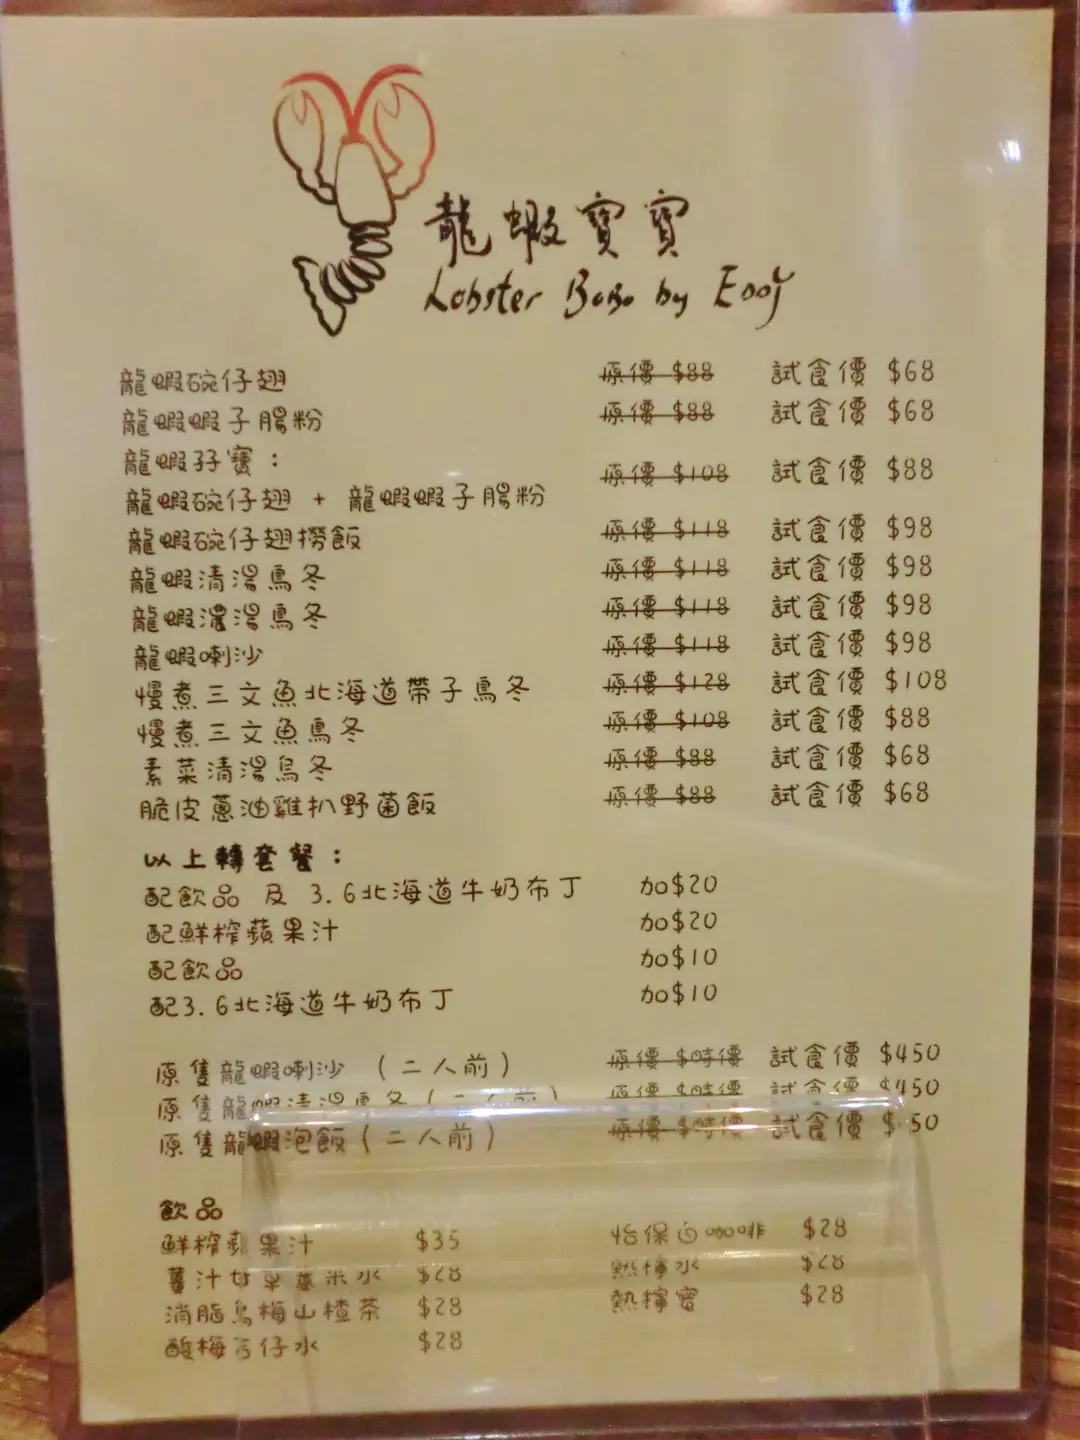 龍蝦寶寶
Lobster BoBo by Eooy
龍蝦碗仔翅 原價 $88 試食價 $68
龍蝦蝦子腸粉 原價 $88 試食價 $68
龍蝦孖寶：
龍蝦碗仔翅 + 龍蝦蝦子腸粉 原價 $108 試食價 $88
龍蝦碗仔翅撈飯 原價 $118 試食價 $98
龍蝦清湯烏冬 原價 $118 試食價 $98
龍蝦濃湯烏冬 原價 $118 試食價 $98
龍蝦喇沙 原價 $118 試食價 $98
慢煮三文魚北海道帶子烏冬 原價 $128 試食價 $108
慢煮三文魚烏冬 原價 $108 試食價 $88
素菜清湯烏冬 原價 $88 試食價 $68
脆皮蔥油雞扒野菌飯 原價 $88 試食價 $68
以上轉套餐：
配飲品 及 3.6北海道牛奶布丁 加$20
配鮮榨蘋果汁 加$20
配飲品 加$10
配3.6北海道牛奶布丁 加$10
原隻龍蝦喇沙 (二人前) 原價 $時價 試食價 $450
原隻龍蝦清湯烏冬 (二人前) 原價 $時價 試食價 $450
原隻龍蝦泡飯 (二人前) 原價 $時價 試食價 $ 50
飲品
鮮榨蘋果汁 $35 怡保白咖啡 $28
薑汁甘草薏米水 $28 熱檸水 $28
消脂烏梅山楂茶 $28 熱檸蜜 $28
酸梅 仔水 $28